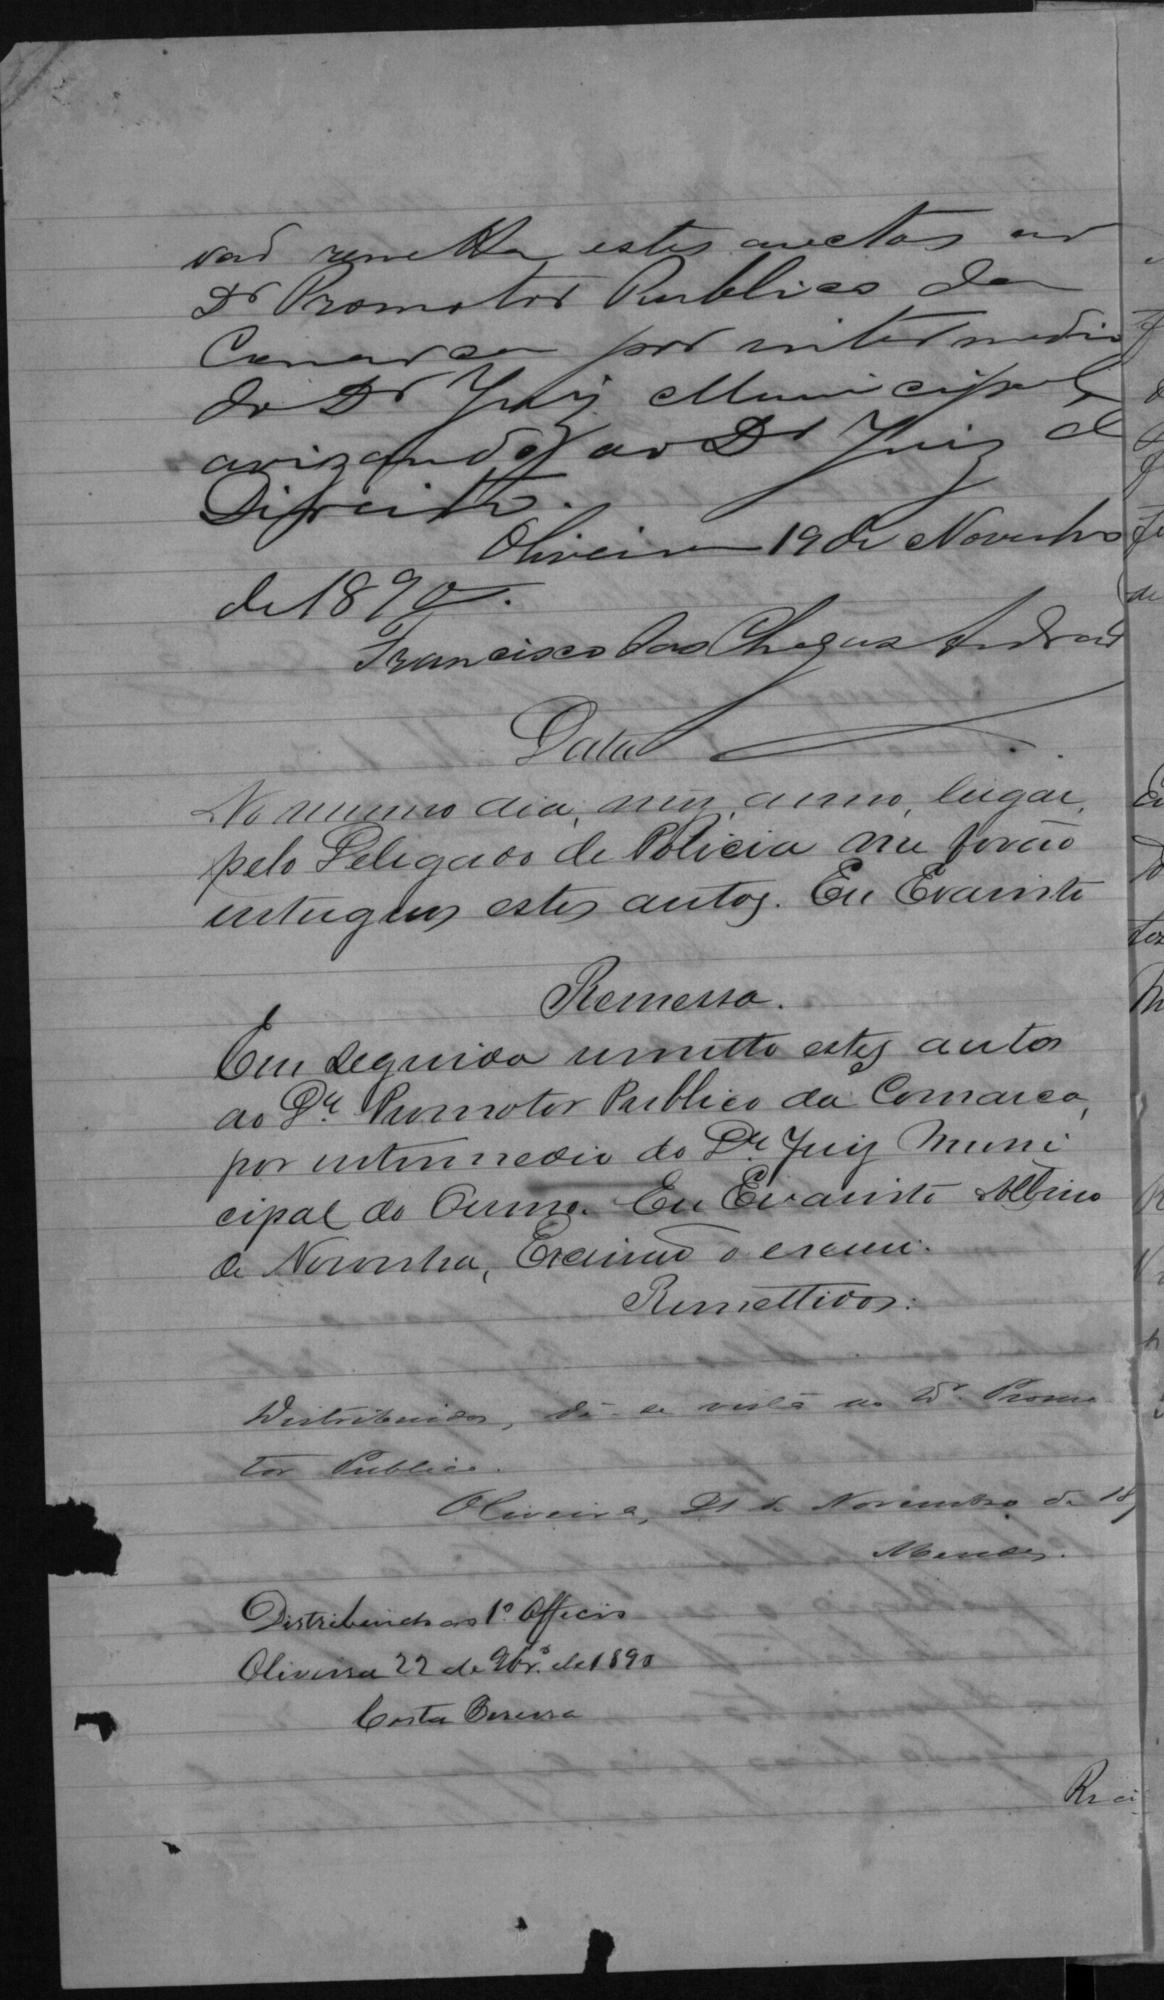 vão remetta estes auctos ao
Dr Promotor Publico da
Comarca por intermedio
do Dr Juiz Municipal,
avizando ao Dr Juiz d
Direito.
Oliveira 19 de Novembro
de 1890.
Francisco das Chagas Andrad
Data
No mesmo dia, mez, anno, lugar,
pelo Delegado de Policia me forão
entregues estes autos. Eu Evaristo
Remessa.
Em seguida remetto estes autos
ao Dr. Promotor Publico da Comarca,
por intermedio do Dr. Juiz Muni
cipal do Termo. Eu Evaristo Albino
de Noronha, Escrivão o escrevi.
Remettidos.
Distribuidos, dê-se vista ao Dr. Promo
tor Publico.
Oliveira, 21 de Novembro de 18
Mendes.
Distribuido ao 1º Officio
Oliveira 22 de 9br.º de 1890
Costa Bezerra